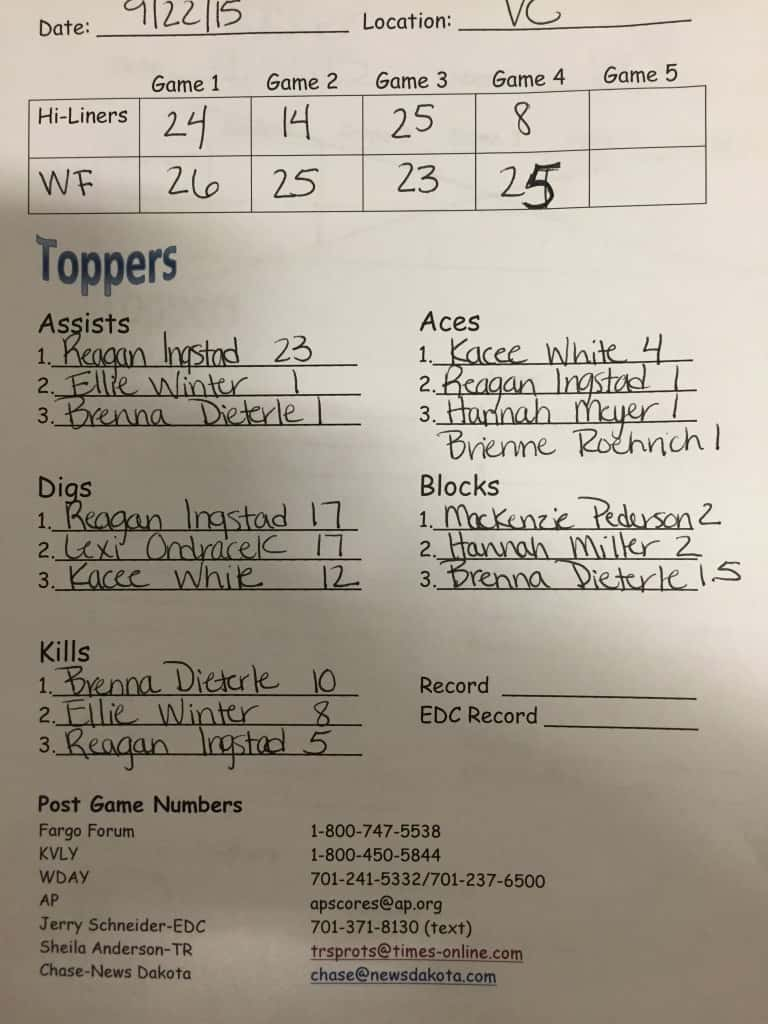 Date: 9/22/15 Location: VC
Game 1 Game 2 Game 3 Game 4 Game 5
Hi-Liners 24 14 25 8
WF 26 25 23 25
Toppers
Assists
1. Reagan Ingstad 23
2. Ellie Winter 1
3. Brenna Dieterle 1
Aces
1. Kacee White 4
2. Reagan Ingstad 1
3. Hannah Meyer 1
Brienne Roehrich 1
Digs
1. Reagan Ingstad 17
2. Lexi Ondracek 17
3. Kacee White 12
Blocks
1. Mackenzie Pederson 2
2. Hannah Miller 2
3. Brenna Dieterle 1.5
Kills
1. Brenna Dieterle 10
2. Ellie Winter 8
3. Reagan Ingstad 5
Record
EDC Record
Post Game Numbers
Fargo Forum 1-800-747-5538
KVLY 1-800-450-5844
WDAY 701-241-5332/701-237-6500
AP apscores@ap.org
Jerry Schneider-EDC 701-371-8130 (text)
Sheila Anderson-TR trsprots@times-online.com
Chase-News Dakota chase@newsdakota.com